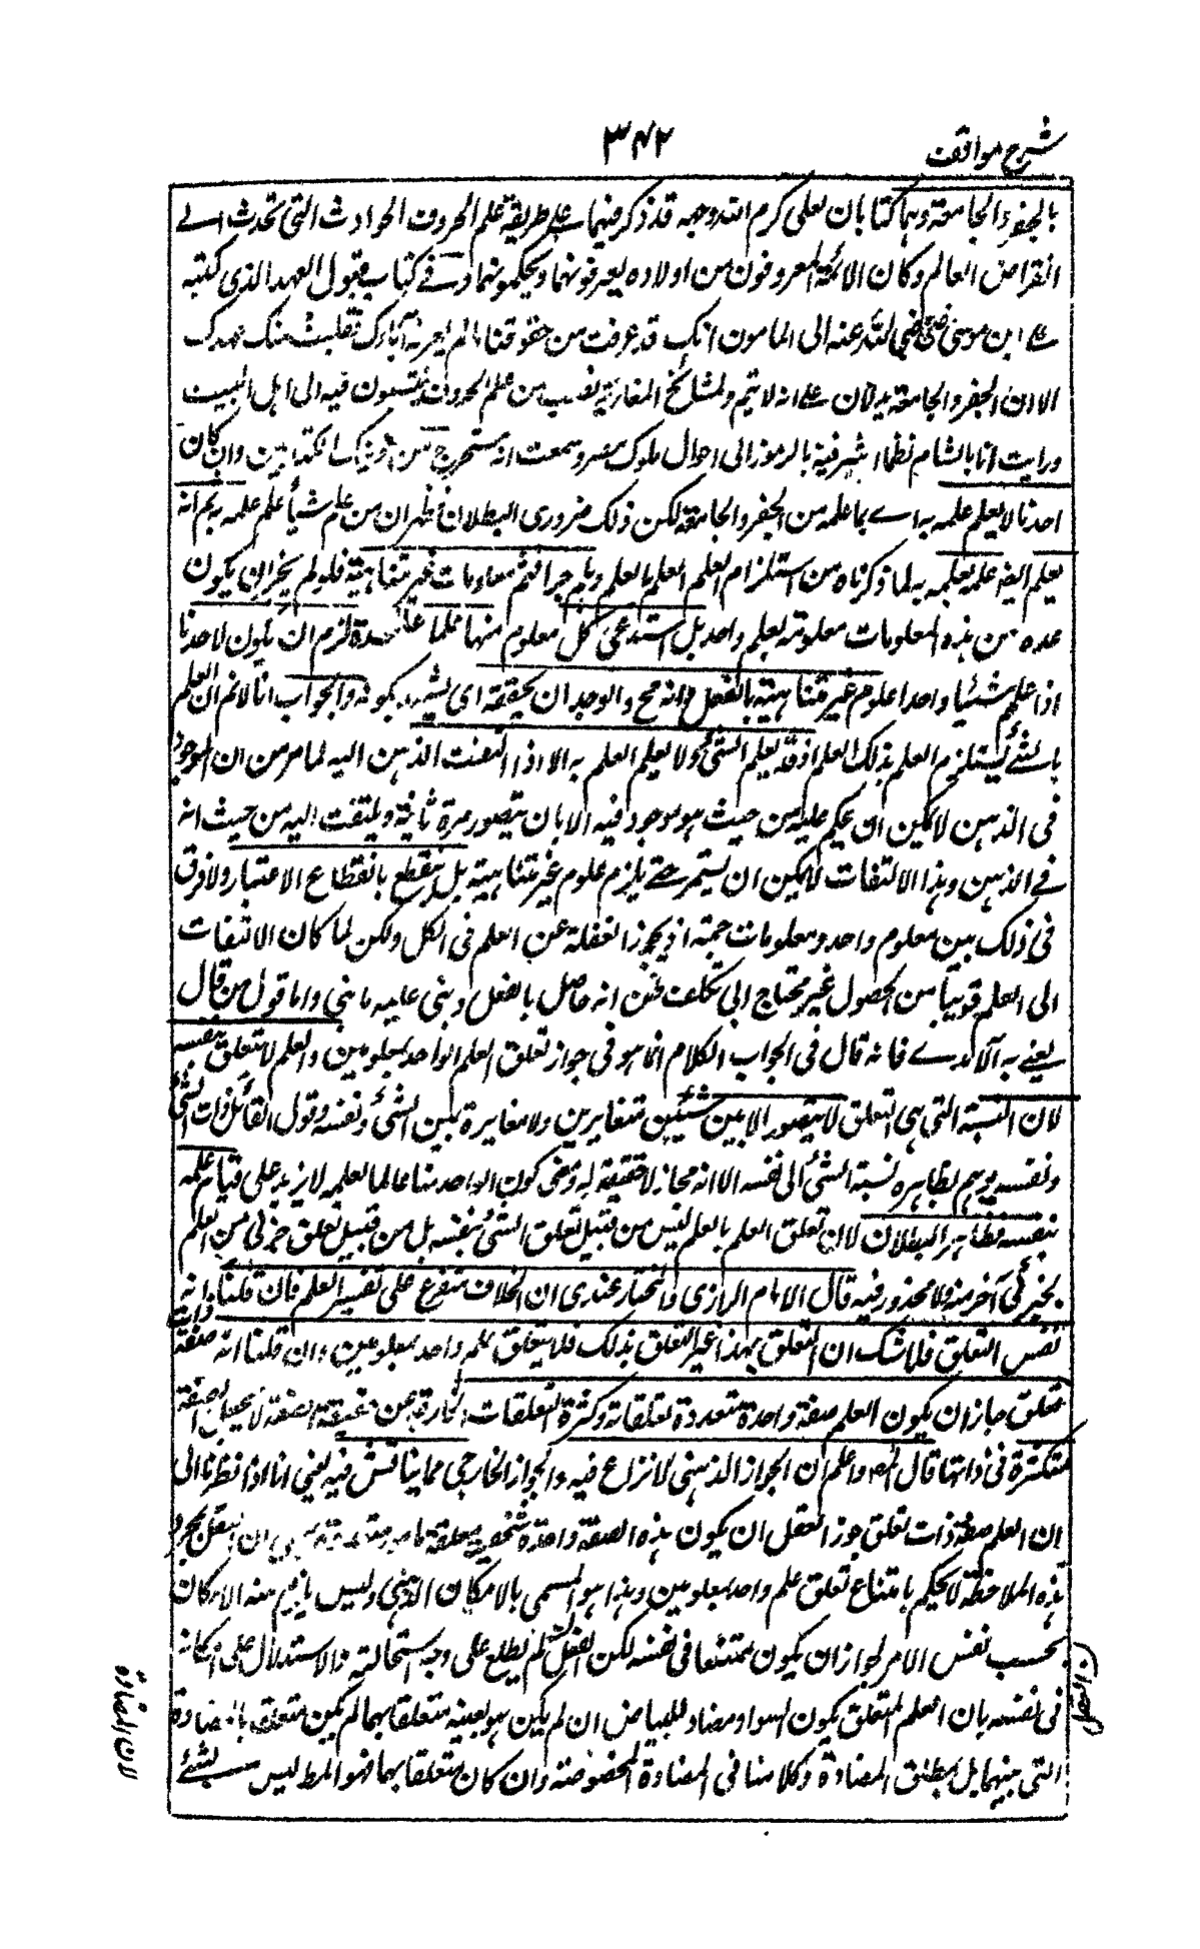 شرح مواقف
۳۴۲
بالجفر والجامعة وهما كتابان لعلى كرم الله وجهه قد ذكر فيهما على طريقة علم الحروف الحوادث التى تحدث الى
انقراض العالم وكان الائمة المعروفون من اولاده يعرفونهما ويحكمون بهما وفى كتاب قبول العهد الذى كتبه
على ابن موسى رضى الله عنه الى المامون انك قد عرفت من حقوقنا مالم يعرفه آباؤك فقبلت منك عهدك
الا ان الجفر والجامعة يدلان على انه لا يتم ولمشائخ المغاربة نصيب من علم الحروف ينتسبون فيه الى اهل البيت
ورايت انا بالشام نظما اشير فيه بالرموز الى احوال ملوك مصر وسمعت انه مستخرج من ذينك الكتابين وان كان
احدنا لا يعلم علمه به اى بما علمه من الجفر والجامعة لكن ذلك ضرورى البطلان فظهر ان من علم شيأ علم علمه به ثم انه
يعلم ايضا علمه بعلمه به لما ذكرناه من استلزام العلم العلم بالعلم وهلم جرا فثم معلومات غير متناهية فلو لم يجز ان يكون
عدة من هذه المعلومات معلومة بعلم واحد بل استدعى كل معلوم منها علما على حدة لزم ان يكون لاحدنا
اذا علم شئيا واحدا علوم غير متناهية بالفعل وانه مح والوجدان يحققه اى يشهد بكونه والجواب انا لا نم ان العلم
بالشئ يستلزم العلم بذلك العلم اذ قد يعلم الشئ ولا يعلم العلم به الا اذا التفت الذهن اليه لما مر من ان الموجود
فى الذهن لا يمكن ان يحكم عليه من حيث هو موجود فيه الا بان يتصور مرة ثانية ويلتفت اليه من حيث انه
فى الذهن وهذا الالتفات لا يمكن ان يستمر حتى يلزم علوم غير متناهية بل ينقطع بانقطاع الاعتبار ولا فرق
فى ذلك بين معلوم واحد ومعلومات جمة اذ يجوز الغفلة عن العلم فى الكل ولكن لما كان الالتفات
الى العلم قريبا من الحصول غير محتاج الى تكلف ظن انه حاصل بالفعل وبنى عليه ما بنى واما قول من قال
يعنى به الآمدى فانه قال فى الجواب الكلام انما هو فى جواز تعلق العلم الواحد بمعلومين والعلم لا يتعلق بنفسه
لان النسبة التى هى التعلق لا يتصور الا بين شيئين متغايرين ولا مغايرة بين الشئ ونفسه وقول القائل ذات الشئ
ونفسه يوهم بظاهره نسبة الشئ الى نفسه الا انه مجاز لا حقيقة له ومعنى كون الواحد منا عالما بعلمه لا يزيد على قيام علمه
بنفسه فظاهر البطلان لان تعلق العلم بالعلم ليس من قبيل تعلق الشئ بنفسه بل من قبيل تعلق جزئى من العلم
بجزئى آخر منه ولا محذور فيه قال الامام الرازى والمختار عندى ان الخلاف متفرع على تفسير العلم فان قلنا انه
نفس التعلق فلا شك ان التعلق بهذا غير التعلق بذلك فلا يتعلق علم واحد بمعلومين وان قلنا انه صفة ذات
تعلق جاز ان يكون العلم صفة واحدة متعددة تعلقاته وكثرة التعلقات الخارجة عن حقيقة الصفة لا يجعل الصفة
متكثرة فى ذاتها قال المص واعلم ان الجواز الذهنى لا نزاع فيه والجواز الخارجى مما يناقش فيه يعنى انا اذا نظرنا الى
ان العلم صفة ذات تعلق جوز العقل ان يكون هذه الصفة واحدة شخصية متعلقة بامور متعددة بمعنى ان العقل بمجرد
هذه الملاحظة لا يحكم بامتناع تعلق علم واحد بمعلومين وهذا هو المسمى بالامكان الذهنى وليس يلزم منه الامكان
بحسب نفس الامر لجواز ان يكون ممتنعا فى نفسه لكن العقل لم يطلع على وجه استحالته والاستدلال على امكانه
فى نفسه بان العلم المتعلق بكون السواد مضادا للبياض ان لم يكن هو بعينه متعلقا بهما لم يكن متعلقا بالمضادة
التى بينهما بل بمطلق المضادة وكلامنا فى المضادة المخصوصة وان كان متعلقا بهما فهو المط ليس بشئ
لان المضادة